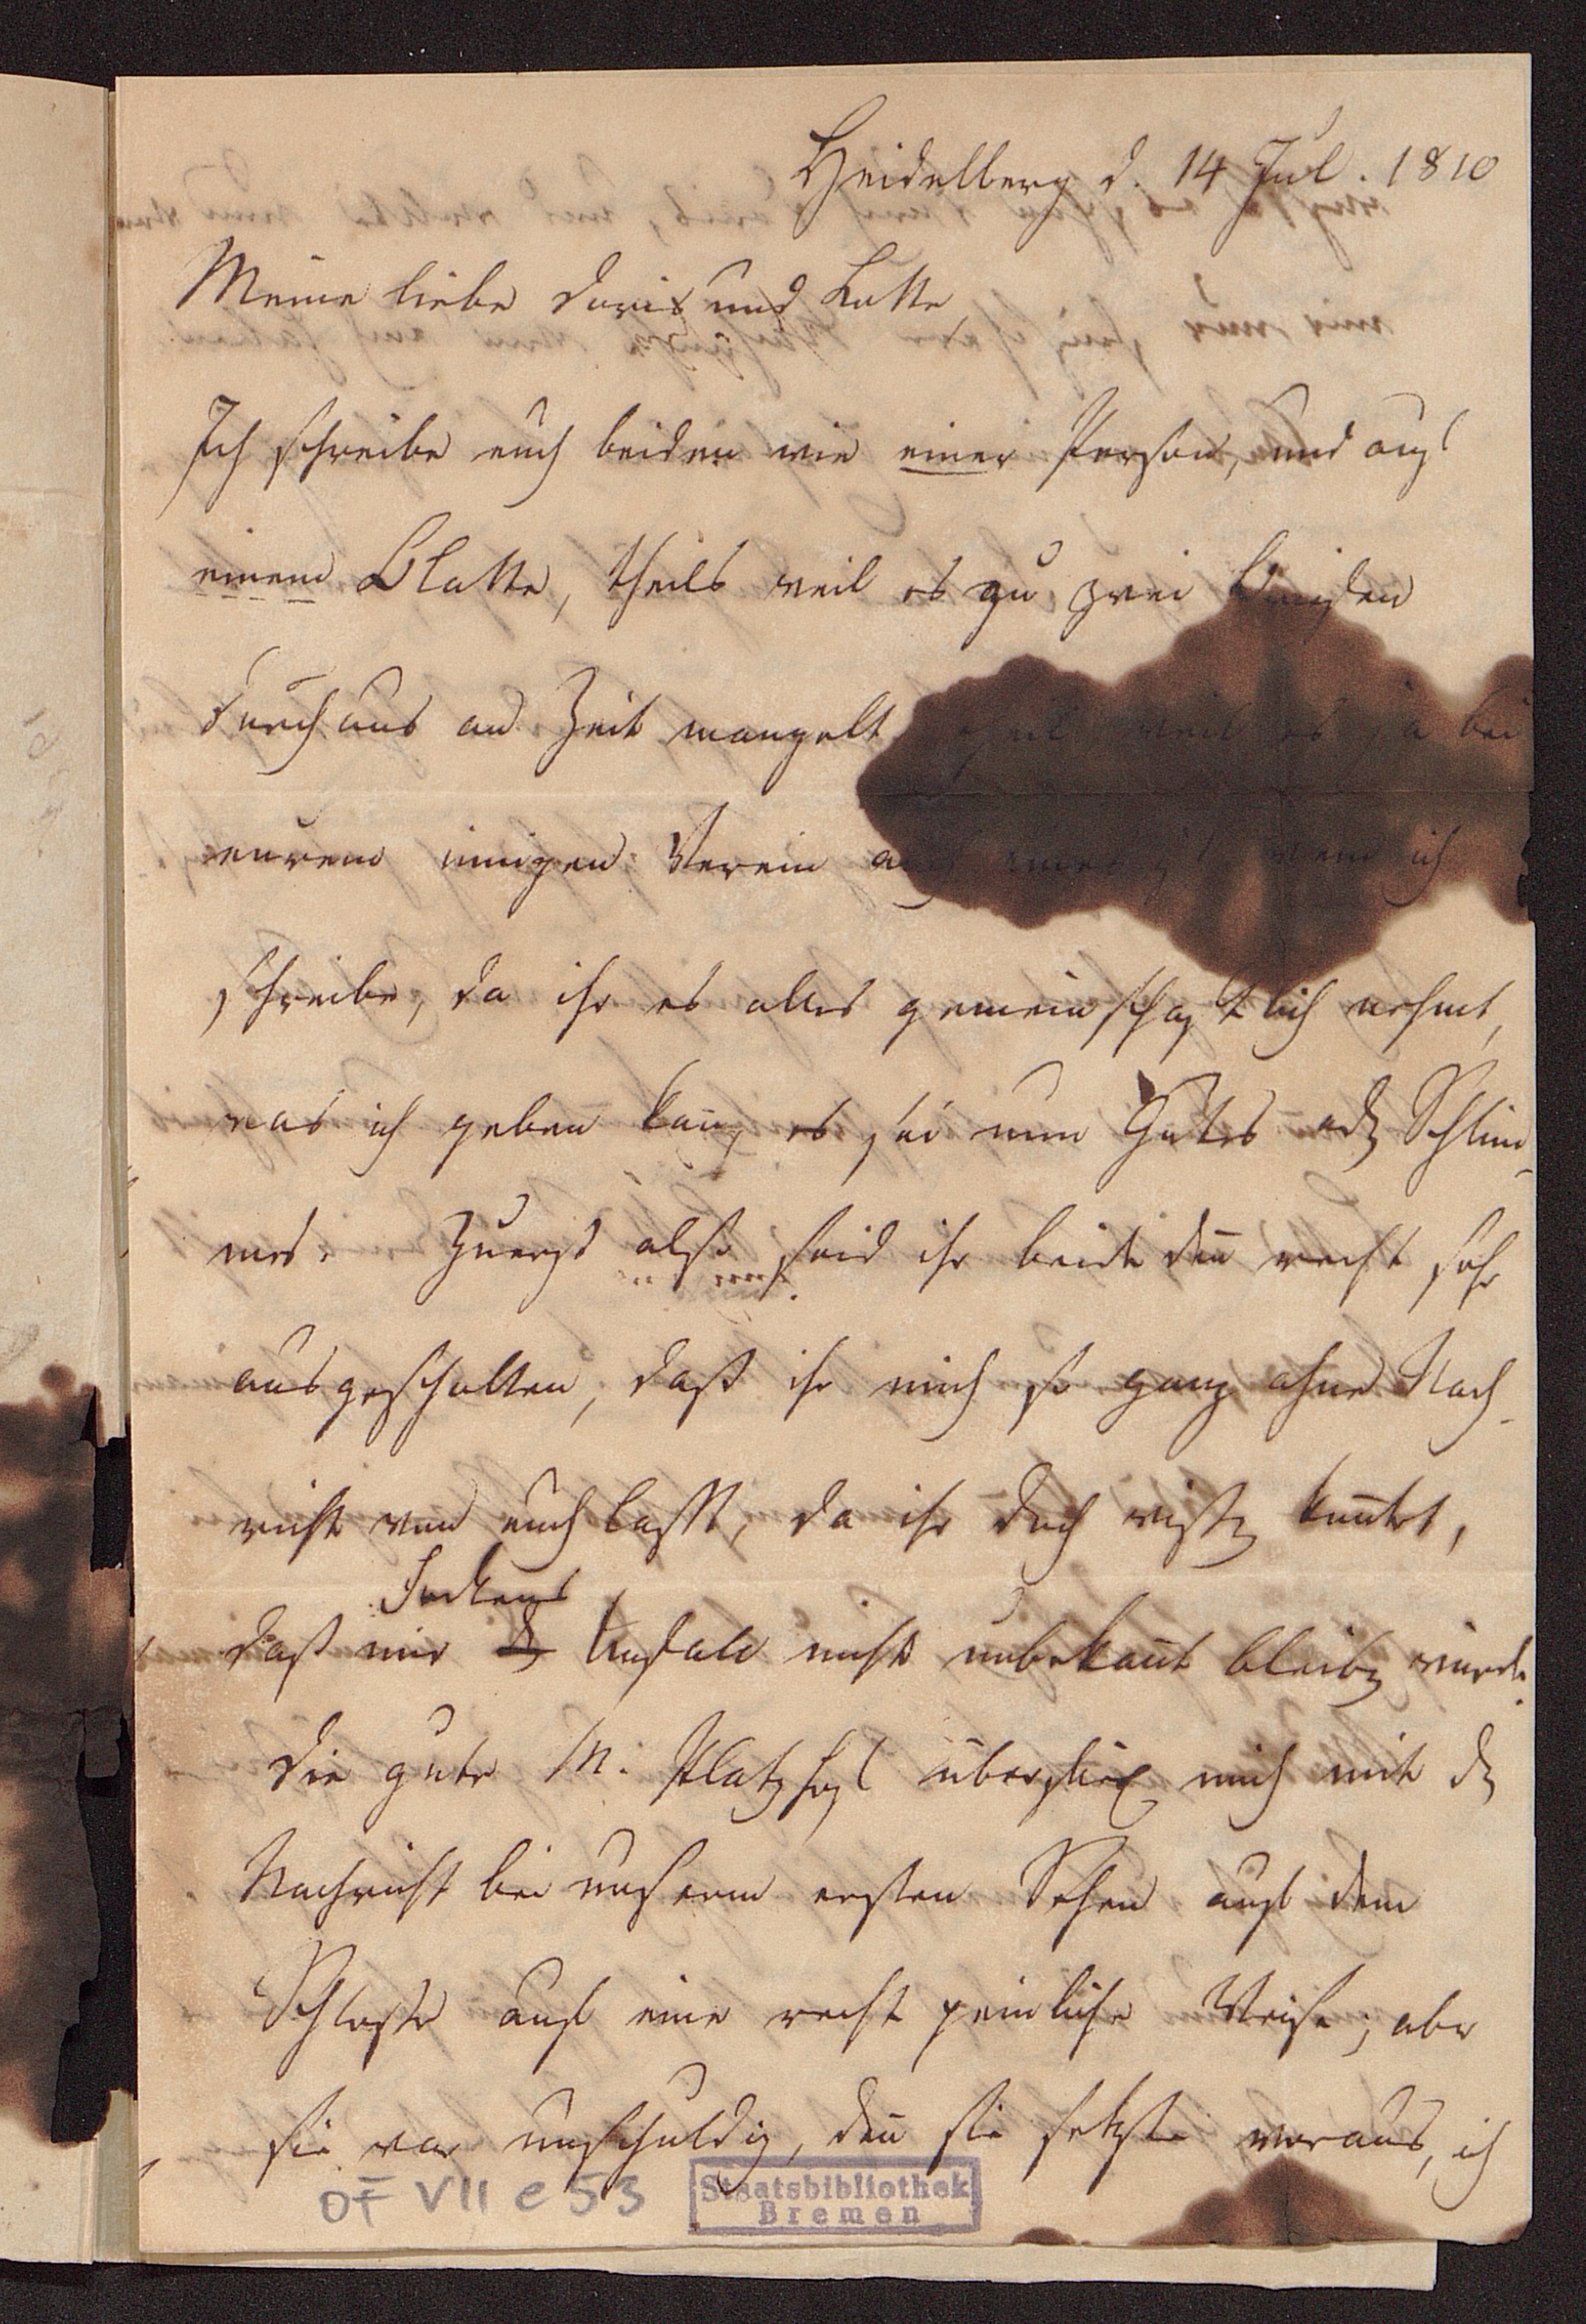 Heidelberg d. 14 Jul. 1810
Meine liebe Doris und Lotte,
Ich schreibe euch beiden wie einer Person, und auf
einem Blatte, theils weil es zu zwei Briefen
durchaus an Zeit mangelt, weil es ja bei
eurem innigen Verein ich
schreibe, da ihr es alles gemeinschaftlich nehmt,
was ich geben kann, es sei nun Gutes od Schlim¬
mes. Zuerst also seid ihr beide den recht sehr
ausgescholten, daß ihr mich so ganz ohne Nach¬
richt von euch laßt, da ihr doch wissen konntet,
daß mir Unfall nicht unbekannt bleiben würde.
Die gute M. Platzhof mich mit der
Nachricht bei unserem ersten Sehen auf dem
Schlosse auf eine recht peinliche Weise; aber
sie war unschuldig, den sie setzte voraus, ich
OF VII e 53
Staatsbibliothek
Bremen